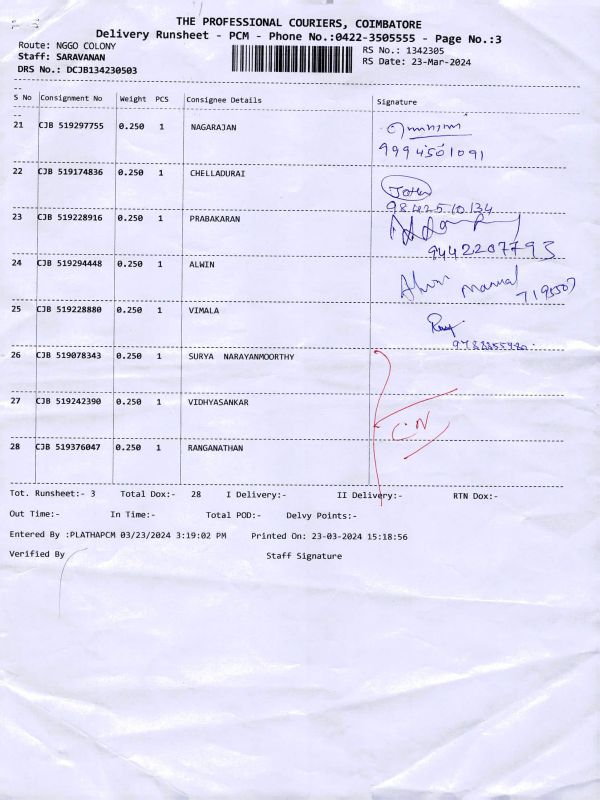 THE PROFESSIONAL COURIERS, COIMBATORE
Delivery Runsheet - PCM - Phone No.:0422-3505555 - Page No.:3
Route: NGGO COLONY RS No.: 1342305
Staff: SARAVANAN RS Date: 23-Mar-2024
DRS No.: DCJB134230503
S No Consignment No Weight PCS Consignee Details Signature
21 CJB 519297755 0.250 1 NAGARAJAN
9994501091
22 CJB 519174836 0.250 1 CHELLADURAI
9842510134
23 CJB 519228916 0.250 1 PRABAKARAN
9442207793
24 CJB 519294448 0.250 1 ALWIN
Alwin
25 CJB 519228880 0.250 1 VIMALA
26 CJB 519078343 0.250 1 SURYA NARAYANMOORTHY
27 CJB 519242390 0.250 1 VIDHYASANKAR
28 CJB 519376047 0.250 1 RANGANATHAN
Tot. Runsheet:- 3 Total Dox:- 28 I Delivery:- II Delivery:- RTN Dox:-
Out Time:- In Time:- Total POD:- Delvy Points:-
Entered By :PLATHAPCM 03/23/2024 3:19:02 PM Printed On: 23-03-2024 15:18:56
Verified By Staff Signature